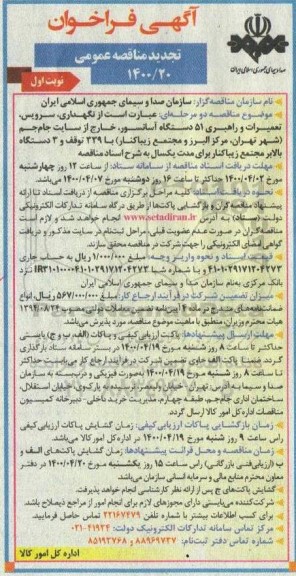 آگهی فراخوان
تجدید مناقصه عمومی
۱۴۰۰/۲۰
نوبت اول
صدا و سیمای جمهوری اسلامی ایران
نام سازمان مناقصه‌گزار: سازمان صدا و سیمای جمهوری اسلامی ایران
موضوع مناقصه دو مرحله‌ای: عبارت است از نگهداری، سرویس،
تعمیرات و راهبری ۵۱ دستگاه آسانسور، خارج از سایت جام‌جم
(شهر تهران، مرکز البرز و مجتمع زیباکنار) با ۳۳۹ توقف و ۳ دستگاه
بالابر مجتمع زیباکنار برای مدت یکسال به شرح اسناد مناقصه
مهلت دریافت اسناد مناقصه از سامانه ستاد: از ساعت ۱۲ روز چهارشنبه
مورخ ۱۴۰۰/۰۴/۰۲ حداکثر تا ساعت ۱۶ روز دوشنبه مورخ ۱۴۰۰/۰۴/۰۷ می‌باشد.
نحوه دریافت اسناد: کلیه مراحل برگزاری مناقصه از دریافت اسناد تا ارائه
پیشنهاد مناقصه‌گران و بازگشایی پاکت‌ها از طریق درگاه سامانه تدارکات الکترونیکی
دولت (ستاد) به آدرس www.setadiran.ir انجام خواهد شد و لازم است
مناقصه‌گران در صورت عدم عضویت قبلی، مراحل ثبت‌نام در سایت مذکور و دریافت
گواهی امضای الکترونیکی را جهت شرکت در مناقصه محقق سازند.
قیمت اسناد و نحوه واریز وجه: مبلغ ۱/۰۰۰/۰۰۰ ریال به حساب جاری
بانک مرکزی به‌نام سازمان صدا و سیمای جمهوری اسلامی ایران
میزان تضمین شرکت در فرآیند ارجاع کار: مبلغ ۵۶۷/۰۰۰/۰۰۰ ریال، انواع
هیات محترم وزیران، منطبق با ماهیت موضوع مناقصه، مورد پذیرش می‌باشد.
مهلت ارسال پیشنهادها: پاکت ارزیابی کیفی و پاکات (الف و ب و ج) بایستی
حداکثر تا ساعت ۸ روز شنبه مورخ ۱۴۰۰/۰۴/۱۹ در بستر سامانه ستاد بارگذاری
گردد. ضمناً پاکت الف حاوی تضمین شرکت در فرآیند ارجاع کار می‌بایست حداکثر
تا ساعت ۸ روز شنبه مورخ ۱۴۰۰/۰۴/۱۹ به‌صورت فیزیکی و دربسته به سازمان
صدا و سیما به آدرس: تهران، خیابان ولیعصر، نرسیده به پارک‌وی، خیابان استقلال،
ساختمان اداری جام‌جم، طبقه چهارم، مدیریت خرید داخلی- دبیرخانه کمیسیون
مناقصات اداره کل امور کالا ارسال گردد.
زمان بازگشایی پاکات ارزیابی کیفی: زمان گشایش پاکات ارزیابی کیفی
راس ساعت ۹ روز شنبه مورخ ۱۴۰۰/۰۴/۱۹ در اداره کل امور کالا می‌باشد.
زمان مناقصه و محل قرائت پیشنهادها: زمان گشایش پاکت‌های الف و
ب (ارزیابی فنی بازرگانی) راس ساعت ۱۵ روز یکشنبه مورخ ۱۴۰۰/۰۴/۲۰ در دفتر
معاون محترم منابع مالی و سرمایه انسانی سازمان می‌باشد.
گشایش پاکت‌های ج پس از ارائه نظر کارشناسی انجام خواهد پذیرفت.
شرکت‌کننده می‌بایستی دارای مجوزهای لازم برای انجام امور از مراجع ذیصلاح باشد.
برای کسب اطلاعات بیشتر با شماره تلفن ۲۲۱۶۷۴۷۹ تماس حاصل فرمایید.
مرکز تماس سامانه تدارکات الکترونیک دولت: ۴۱۹۳۴-۰۲۱
شماره تماس دفتر ثبت‌نام: ۸۸۹۶۹۷۳۷ و ۸۵۱۹۳۷۶۸
اداره کل امور کالا